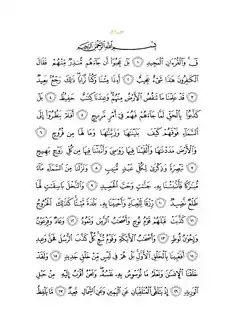 بِسْمِ ٱللَّهِ ٱلرَّحْمَٰنِ ٱلرَّحِيمِ
قٓ ۚ وَٱلْقُرْءَانِ ٱلْمَجِيدِ ١ بَلْ عَجِبُوٓا۟ أَن جَآءَهُم مُّنذِرٌ مِّنْهُمْ فَقَالَ
ٱلْكَٰفِرُونَ هَٰذَا شَىْءٌ عَجِيبٌ ٢ أَءِذَا مِتْنَا وَكُنَّا تُرَابًا ۖ ذَٰلِكَ رَجْعٌۢ بَعِيدٌ
٣ قَدْ عَلِمْنَا مَا تَنقُصُ ٱلْأَرْضُ مِنْهُمْ ۖ وَعِندَنَا كِتَٰبٌ حَفِيظٌۢ ٤ بَلْ
كَذَّبُوا۟ بِٱلْحَقِّ لَمَّا جَآءَهُمْ فَهُمْ فِىٓ أَمْرٍ مَّرِيجٍ ٥ أَفَلَمْ يَنظُرُوٓا۟ إِلَى
ٱلسَّمَآءِ فَوْقَهُمْ كَيْفَ بَنَيْنَٰهَا وَزَيَّنَّٰهَا وَمَا لَهَا مِن فُرُوجٍ ٦
وَٱلْأَرْضَ مَدَدْنَٰهَا وَأَلْقَيْنَا فِيهَا رَوَٰسِىَ وَأَنۢبَتْنَا فِيهَا مِن كُلِّ زَوْجٍۭ بَهِيجٍ
٧ تَبْصِرَةً وَذِكْرَىٰ لِكُلِّ عَبْدٍ مُّنِيبٍ ٨ وَنَزَّلْنَا مِنَ ٱلسَّمَآءِ مَآءً
مُّبَٰرَكًا فَأَنۢبَتْنَا بِهِۦ جَنَّٰتٍ وَحَبَّ ٱلْحَصِيدِ ٩ وَٱلنَّخْلَ بَاسِقَٰتٍ لَّهَا
طَلْعٌ نَّضِيدٌ ١٠ رِّزْقًا لِّلْعِبَادِ ۖ وَأَحْيَيْنَا بِهِۦ بَلْدَةً مَّيْتًا ۚ كَذَٰلِكَ ٱلْخُرُوجُ
١١ كَذَّبَتْ قَبْلَهُمْ قَوْمُ نُوحٍ وَأَصْحَٰبُ ٱلرَّسِّ وَثَمُودُ ١٢ وَعَادٌ وَفِرْعَوْنُ
وَإِخْوَٰنُ لُوطٍ ١٣ وَأَصْحَٰبُ ٱلْأَيْكَةِ وَقَوْمُ تُبَّعٍ ۚ كُلٌّ كَذَّبَ ٱلرُّسُلَ فَحَقَّ وَعِيدِ
١٤ أَفَعَيِينَا بِٱلْخَلْقِ ٱلْأَوَّلِ ۚ بَلْ هُمْ فِى لَبْسٍ مِّنْ خَلْقٍ جَدِيدٍ ١٥ وَلَقَدْ
خَلَقْنَا ٱلْإِنسَٰنَ وَنَعْلَمُ مَا تُوَسْوِسُ بِهِۦ نَفْسُهُۥ ۖ وَنَحْنُ أَقْرَبُ إِلَيْهِ مِنْ حَبْلِ
ٱلْوَرِيدِ ١٦ إِذْ يَتَلَقَّى ٱلْمُتَلَقِّيَانِ عَنِ ٱلْيَمِينِ وَعَنِ ٱلشِّمَالِ قَعِيدٌ ١٧